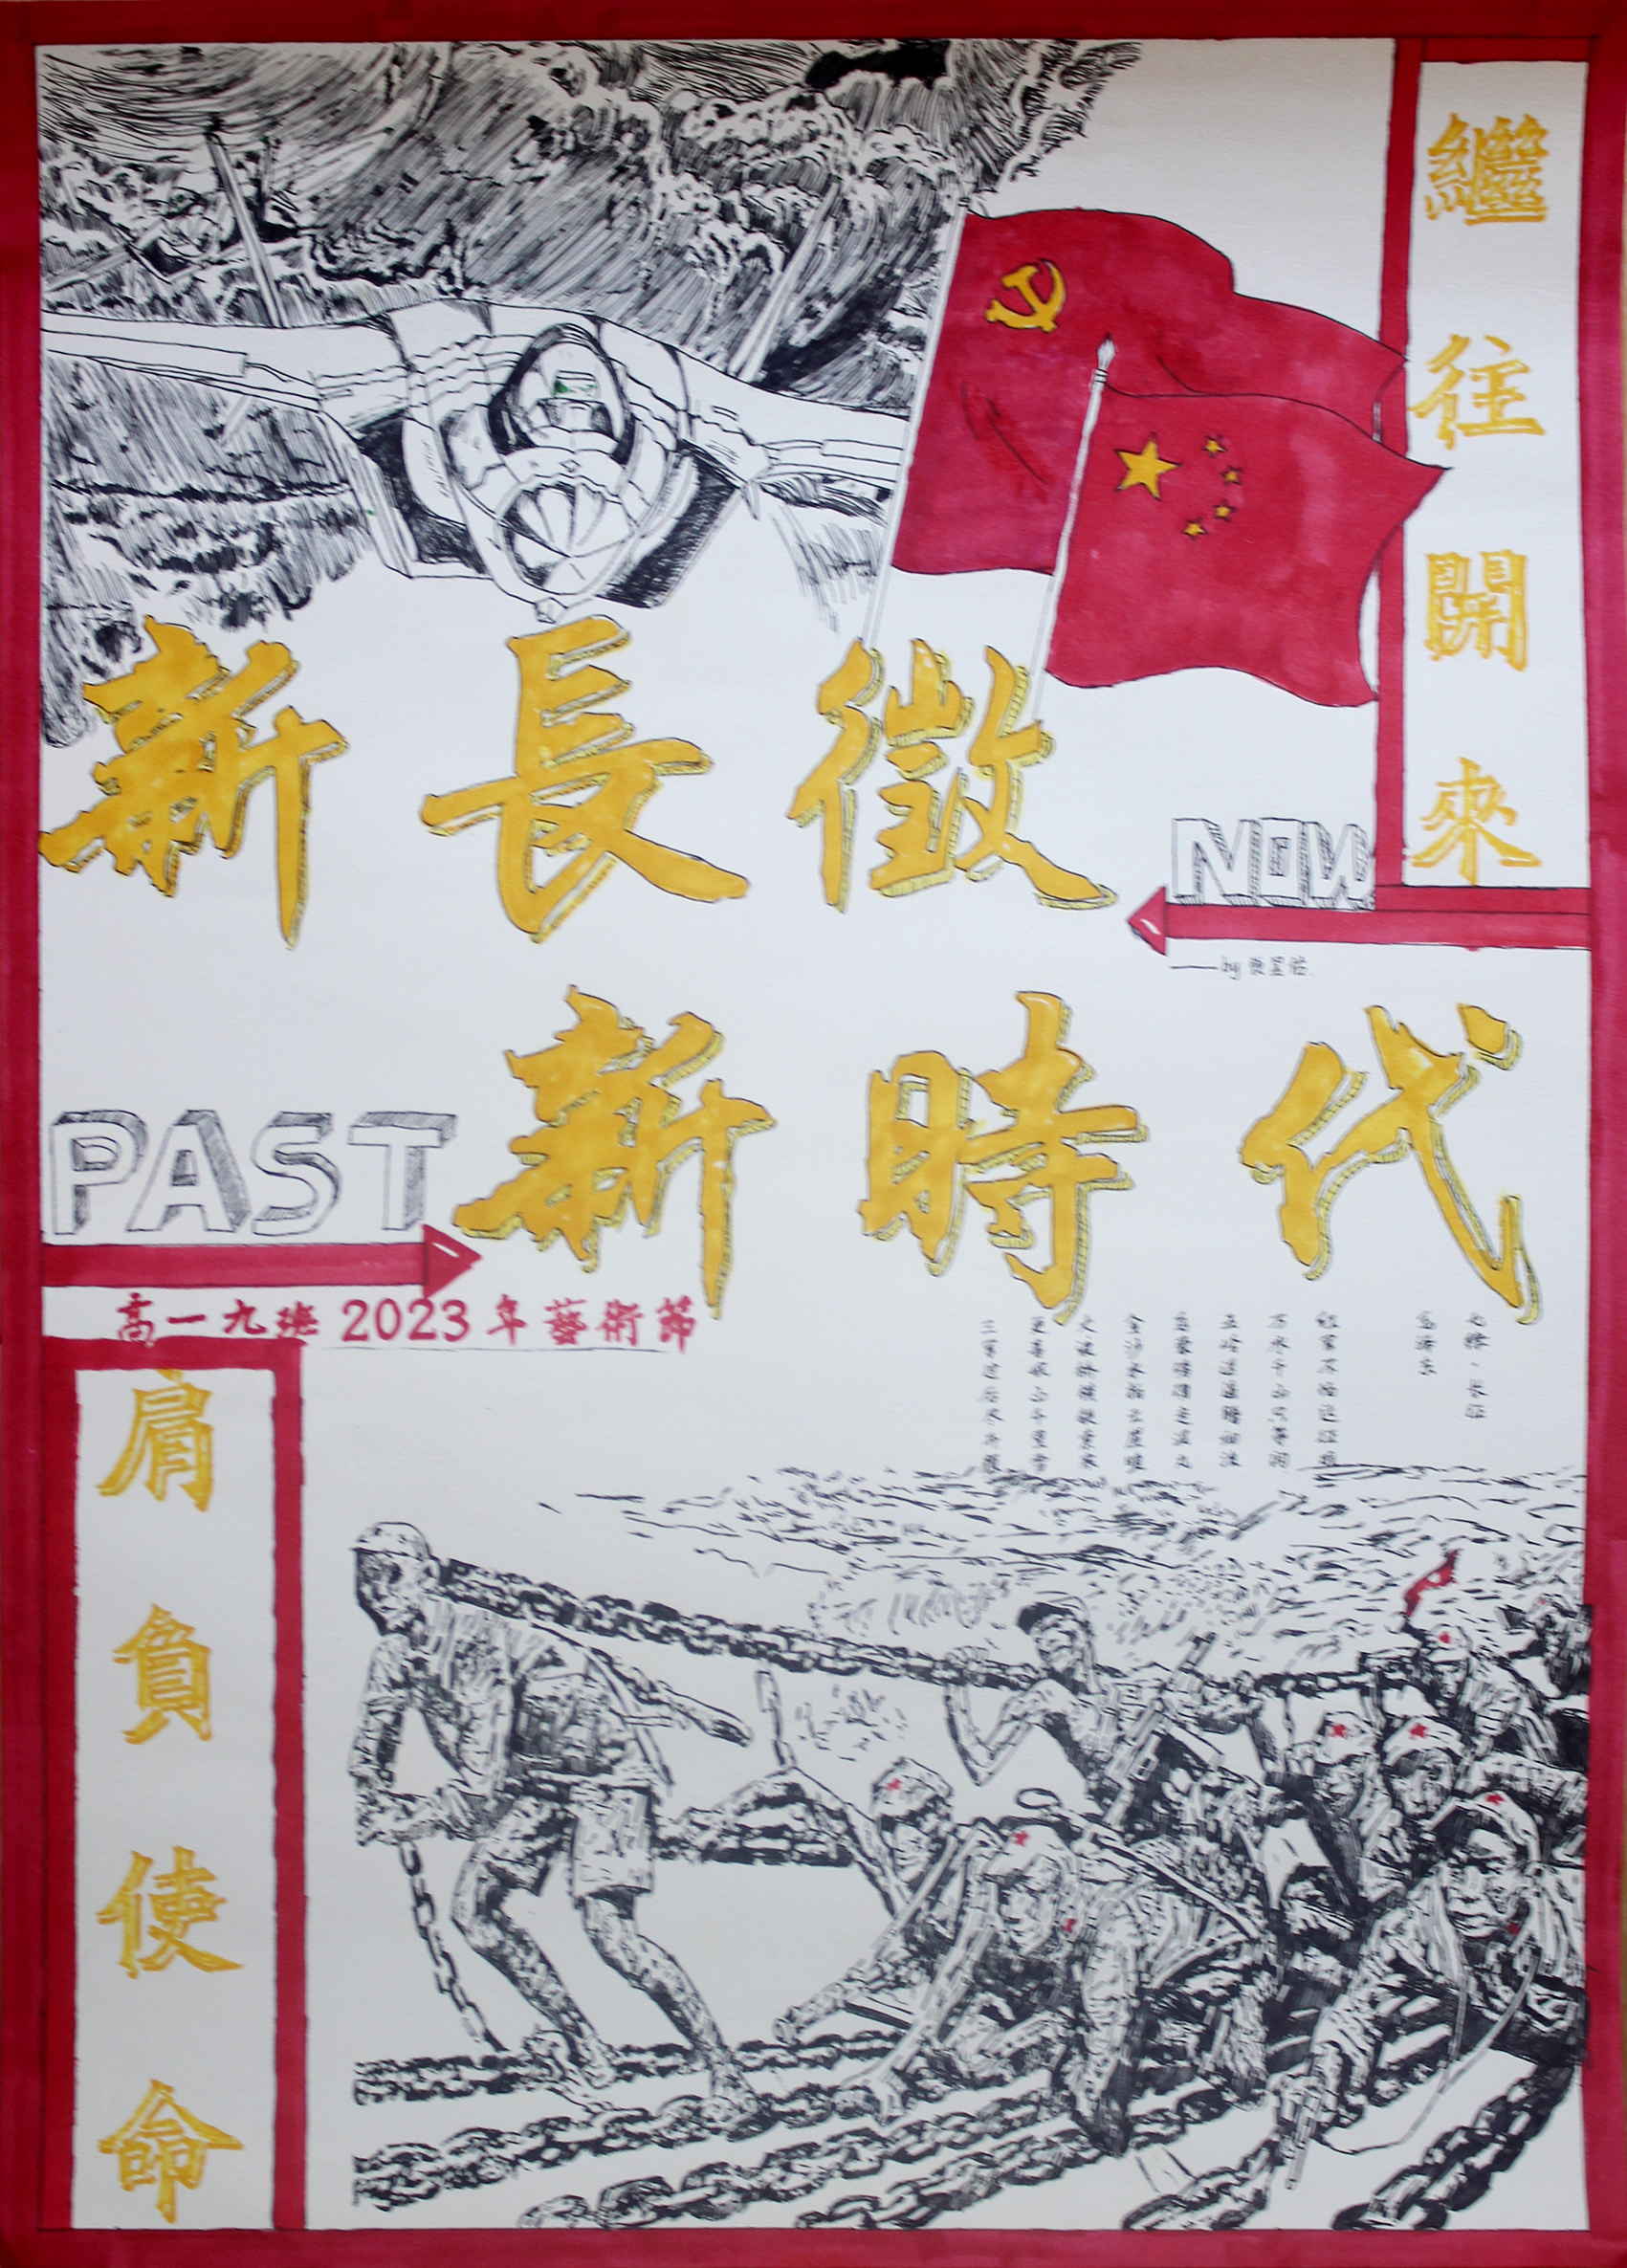 繼往開來
新長徵
NOW
——by
新時代
PAST
高一九班 2023年藝術節
七律·长征
毛泽东
红军不怕远征难
万水千山只等闲
五岭逶迤腾细浪
乌蒙磅礴走泥丸
金沙水拍云崖暖
大渡桥横铁索寒
更喜岷山千里雪
三军过后尽开颜
肩負使命